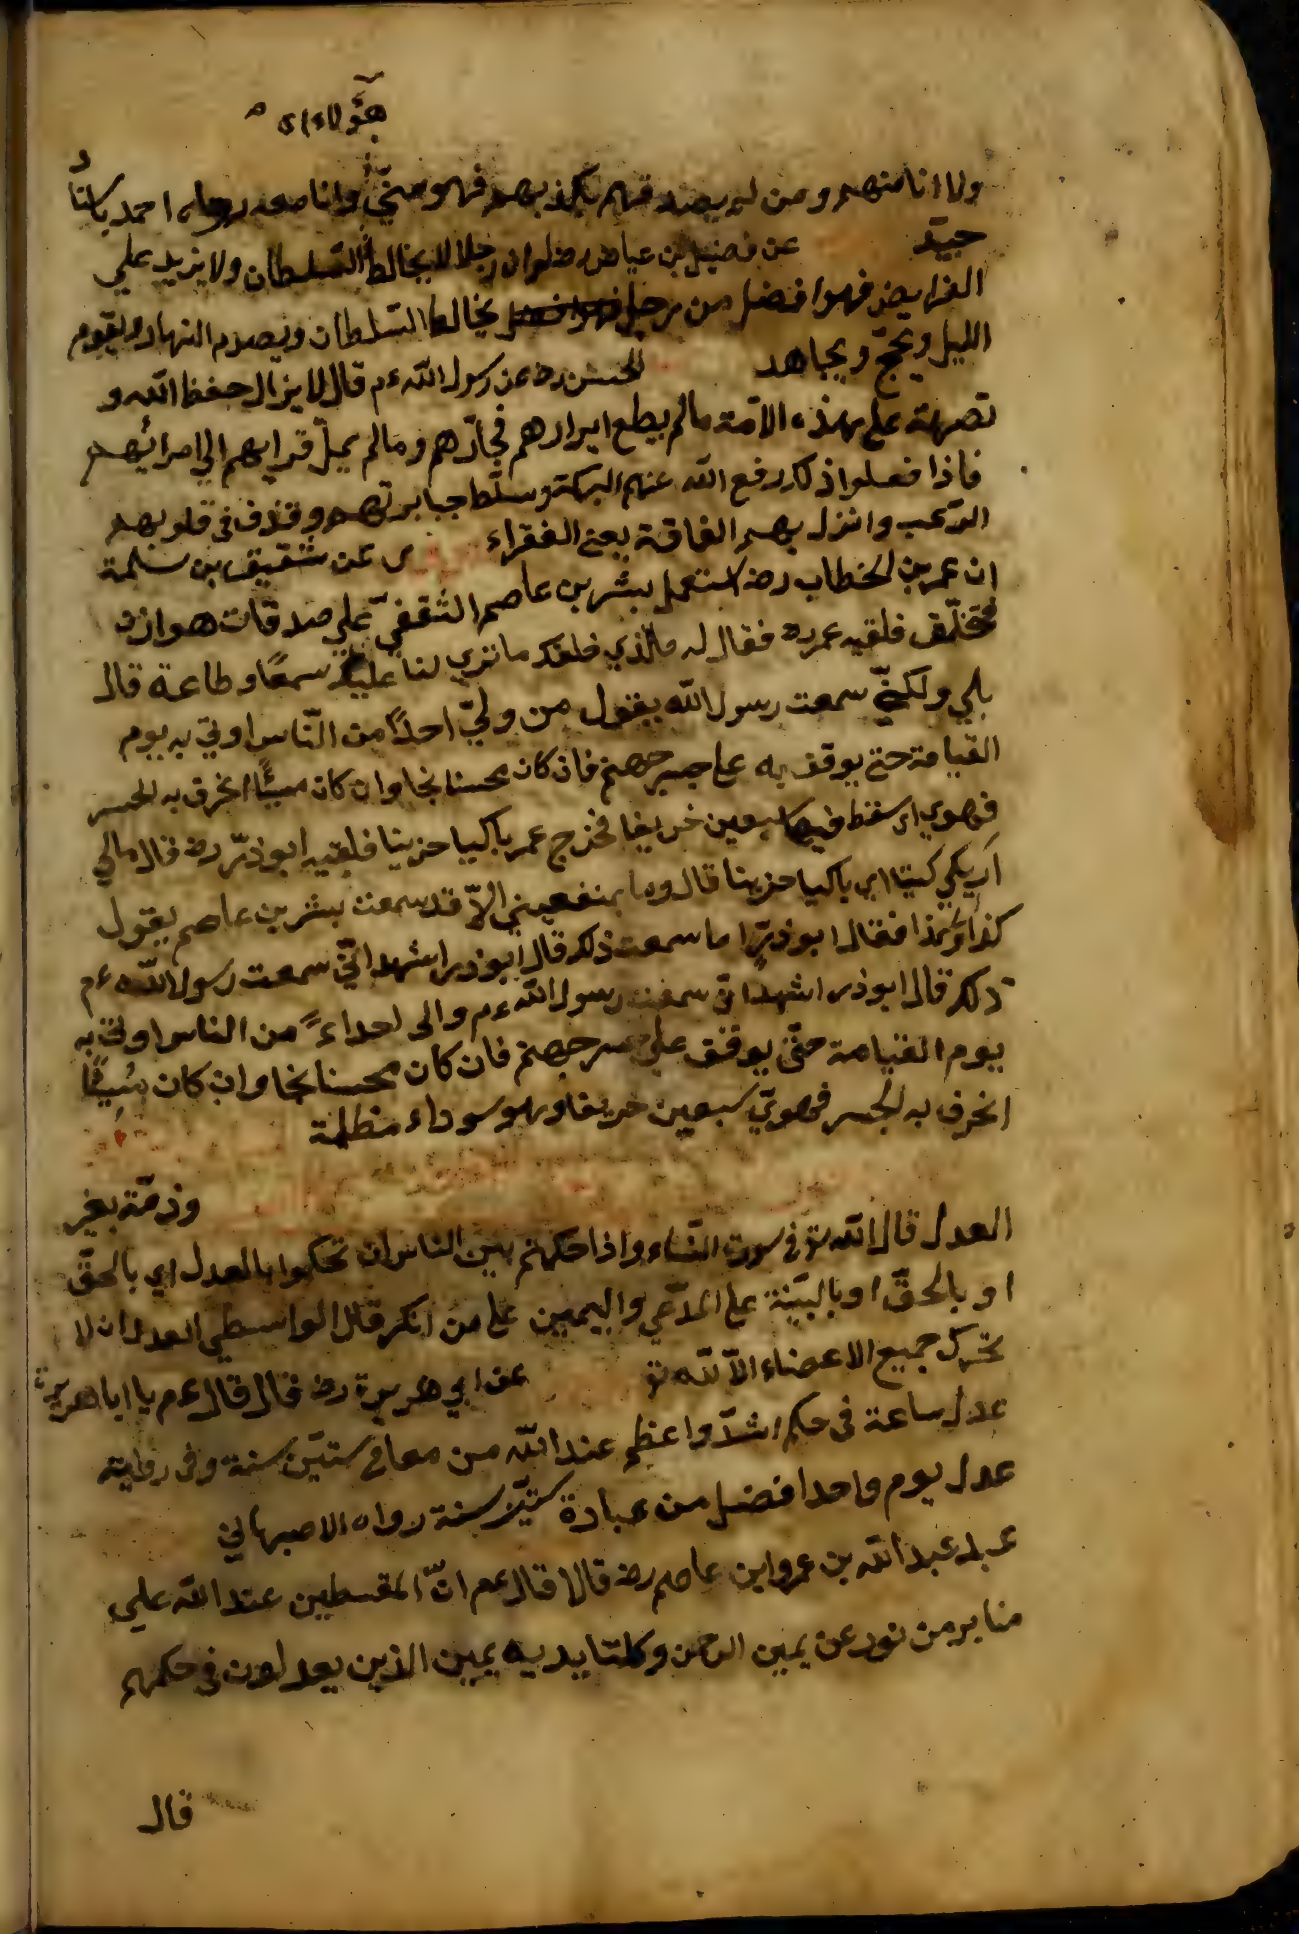 ولا انا منهم ومن لم يصدقهم بكذبهم فهو منّي وانا معه رواه احمد باسناد
جيّد عن فضيل بن عياض رضه لو ان رجلا لا يخالط السّلطان ولا يزيد علي
الفرايض فهوا فضل من رجل يخالط السّلطان ويصوم النهار ويقوم
الليل ويحجّ ويجاهد الحسن رضه عن رسول الله ءم قال لا يزال حفظ الله و
نصرته علي هذه الامّة مالم يطع ابرارهم فجّارهم ومالم يمل قرابهم الي امرائهم
فاذا فعلوا ذلك رفع الله عنهم البركة وسلّط جبابرتهم وقذف في قلوبهم
الرّعب وانزل بهم الفاقة يعني الفقراء عن شقيق بن سلمة
ان عمر بن الخطاب رضه استعمل بشر بن عاصم الثقفيّ علي صدقات هوازن
فتخلّف فلقيه عمر رضه فقال له ما الذي خلفك ما تري لنا عليك سمعًا وطاعة قال
بلي ولكنّي سمعت رسول الله يقول من وليّ احدًا من النّاس اوتي به يوم
القيامة حتي يوقف به علي جسر جهنم فان كان محسنا نجا وان كان مسيئًا انخرق به الجسر
فهوي اي سقط فيها سبعين خريفا فخرج عمر باكيا حزينا فلقيه ابو ذرّ رضه قال مالي
اريكي كئيبا اي باكيا حزينا قال وما يمنعني الّا قد سمعت بشر بن عاصم يقول
كذا وكذا فقال ابو ذرّ اما سمعت ذلك قال ابو ذر اشهد انّي سمعت رسول الله ءم
ذلك قال ابو ذر اشهد انّي سمعت رسول الله ءم والي احداءً من الناس اوتي به
يوم القيامة حتّي يوقف علي جسر جهنم فان كان محسنا نجا وان كان مسيئًا
انخرق به الجسر فهويّ سبعين خريفا وهو سوداء مظلمة
وذمّة بغير
العدل قال الله تع في سورت النّساء واذا حكمتم بين الناس ان تحكموا بالعدل اي بالحقّ
او بالحقّ او بالبيّنة علي المدّعي واليمين علي من انكر قال الواسطي العدل ان لا
تحرّك جميع الاعضاء الّا للّه تع عن ابي هريرة رضه قال قال ءم يا ابا هريرة
عدل ساعة في حكم اشدّ واعظم عند الله من معاصي ستّين سنة وفي رواية
عدل يوم واحد افضل من عبادة ستّين سنة رواه الاصبهاني
عبد الله بن عمرو ابن عاصم رضه قالا قال ءم انّ المقسطين عند الله علي
منابر من نور عن يمين الرحمن وكلتا يديه يمين الذين يعدلون في حكمهم
قال